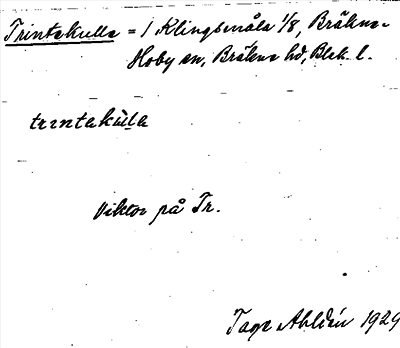 Trintakulla = / Klingsmåla 1/8, Bräkne-
Hoby sn, Bräkne hd, Blek. l.
trıntakùlla
Viktor på Tr.
Tage Ahldén 1929